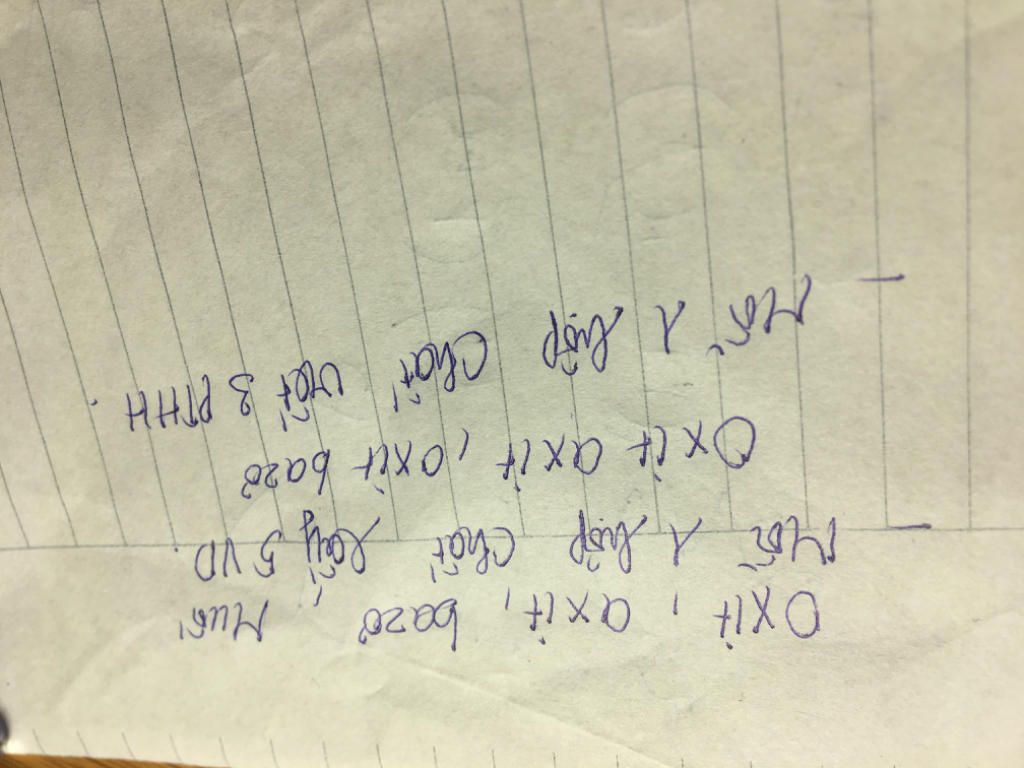 Oxit, axit, bazơ, Muối
- Mỗi 1 hợp chất lấy 5 VD.
Oxit axit, oxit bazơ
- Mỗi 1 hợp chất viết 3 PTHH.